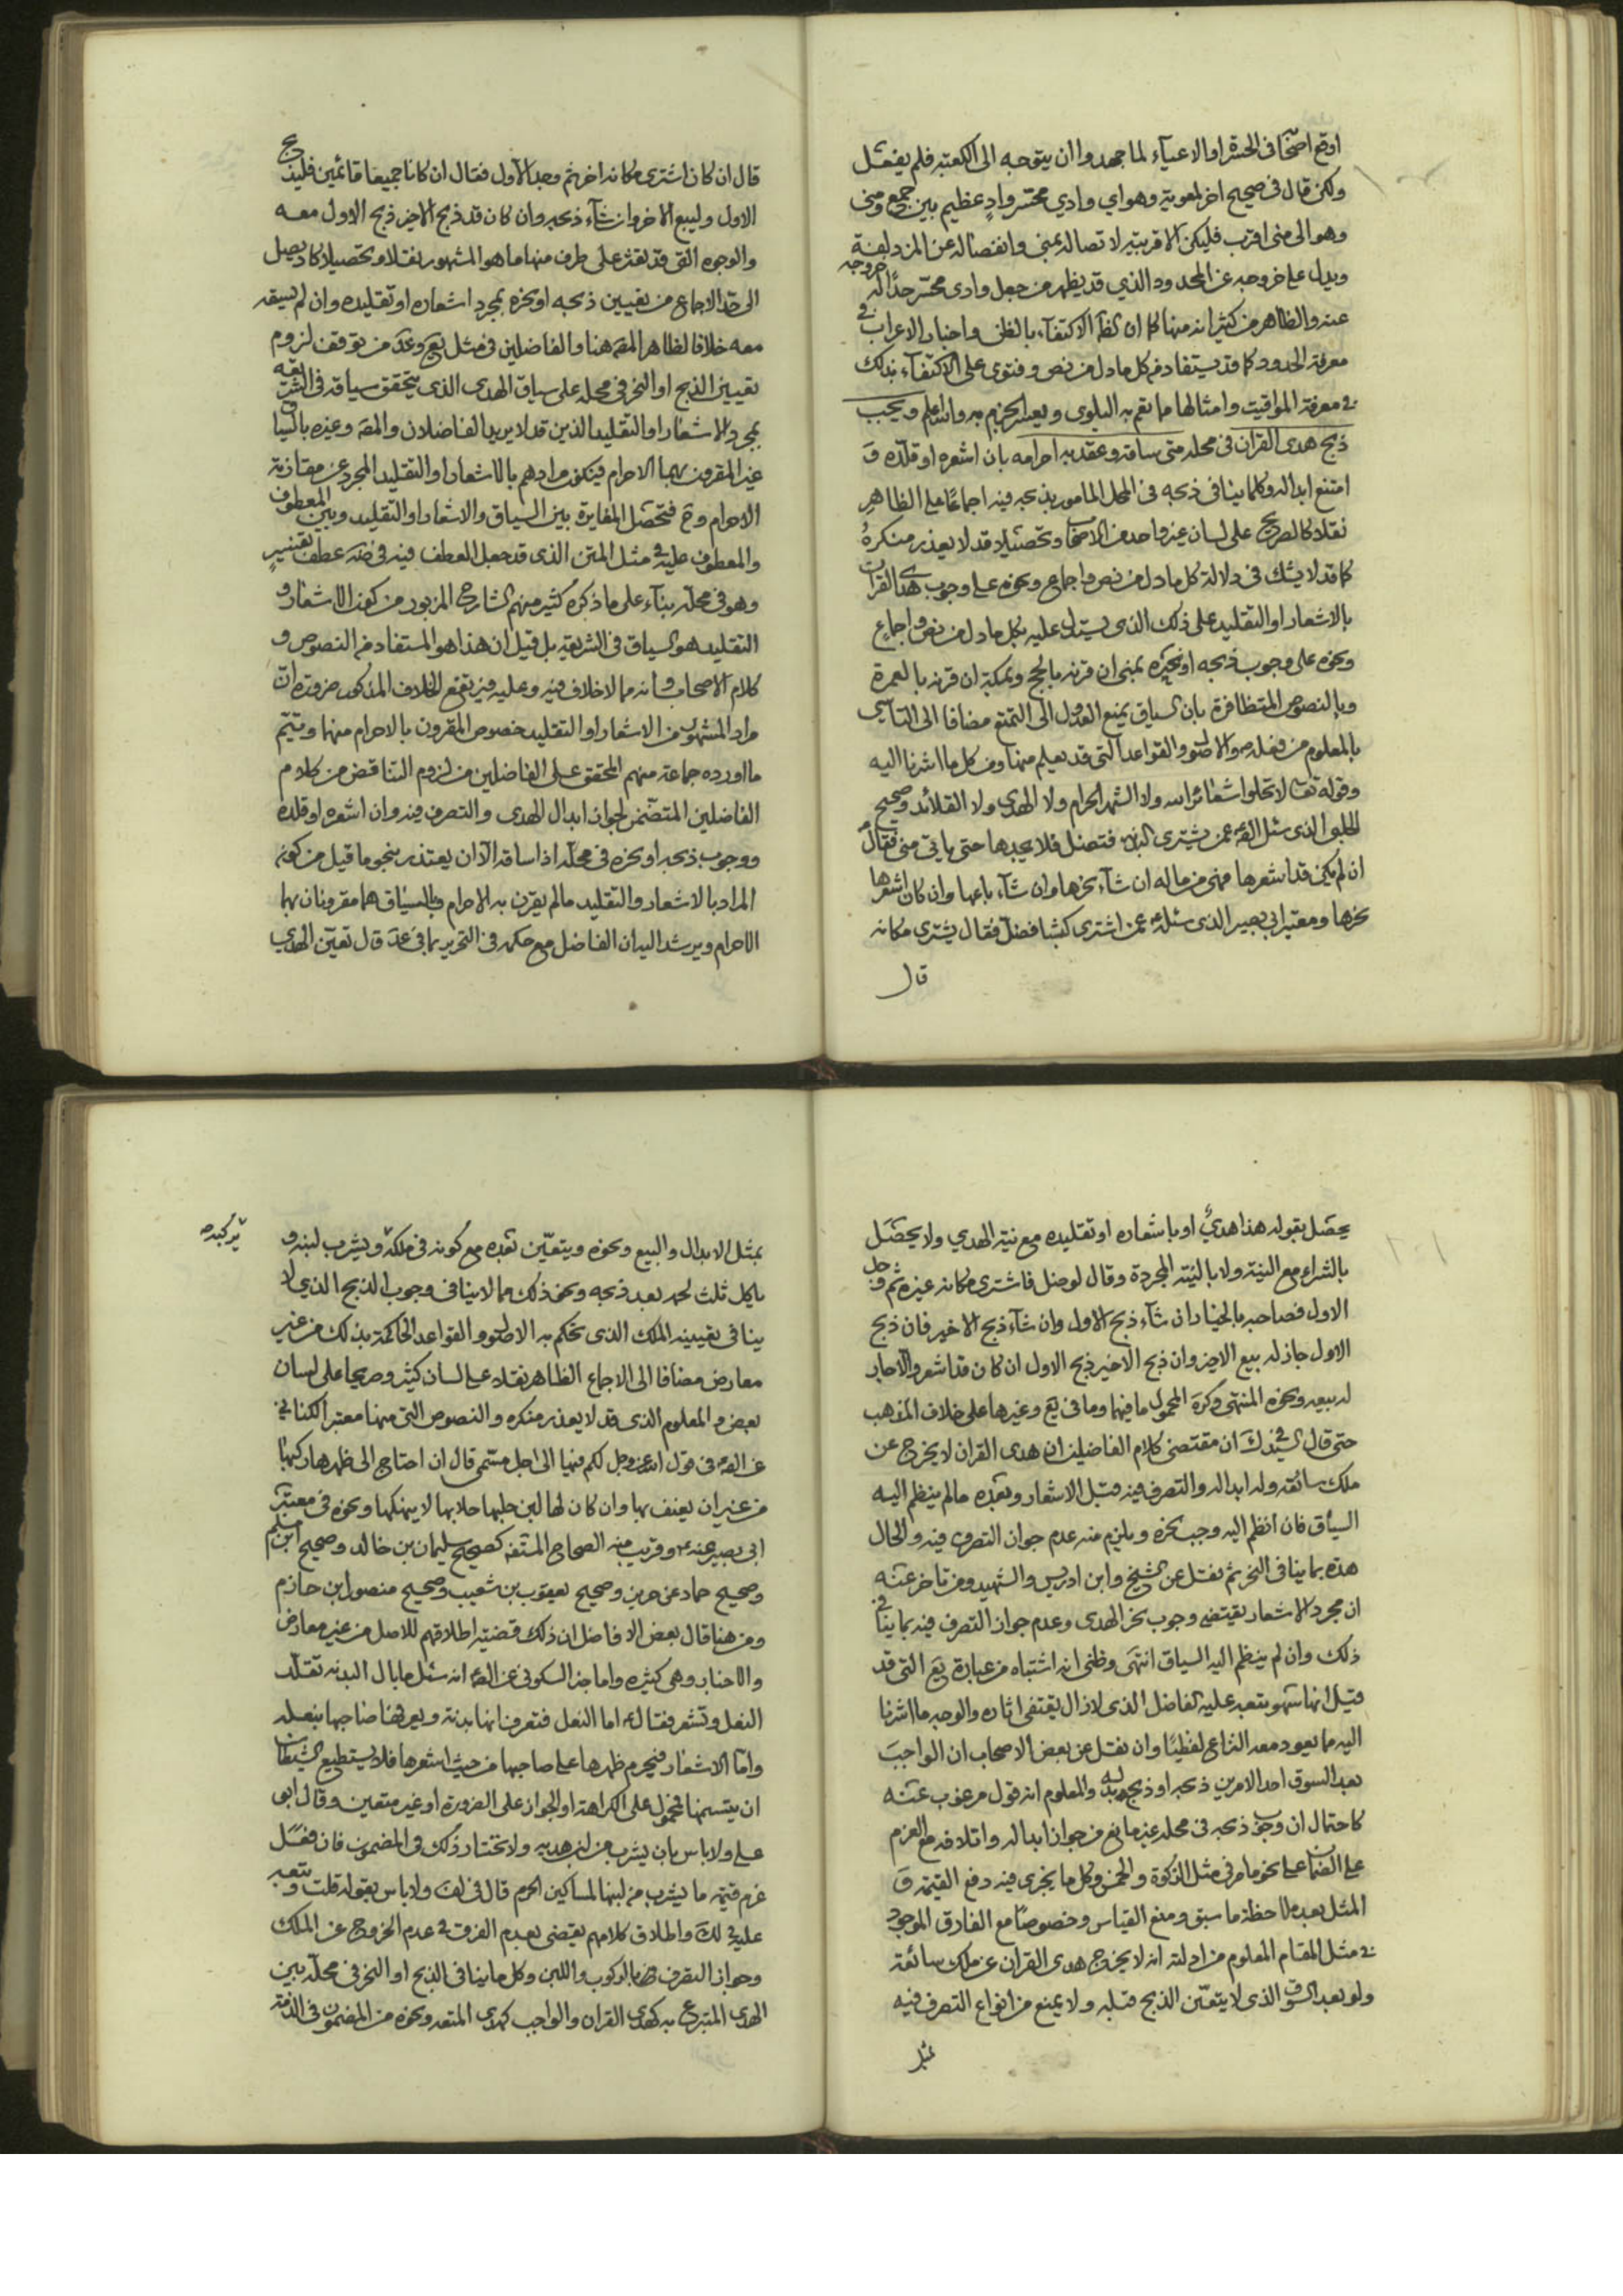 اوقع اصحابنا في الحسرة والاعياء لما جهدوا ان يتوجه الى الكعبة فلم يفعل
ولكن قال في صحيح اخر لمعوية وهو اي وادي محسر واد عظيم بين جمع ومنى
وهو الى منى اقرب فليكن الاقربيته لاتصاله بمنى وانفصاله عن المزدلفة
ويدل على خروجه عن المحدود الذي قد يظهر من جعل وادى محسر حدا له خروجه
عنه والظاهر من كثير انه منها كما ان ظ الاكتفاء بالظن واخبار الاعراب في
معرفة الحدود كما قد يستفاد من كل ما دل من نص وفتوى على الاكتفاء بذلك
في معرفة المواقيت وامثالها مما تعم به البلوى ويعسر الجزم به والله اعلم ويجب
ذبح هدى القران في محله متى ساقه وعقد به احرامه بان اشعره او قلده و
امتنع ابداله وكلما ينافى ذبحه في المحل المامور بذبحه فيه اجماعا على الظاهر
نقلا كالصريح على لسان غير واحد من الاصحاب وتحصيلا قد لا يعذر منكره
كما قد لا يشك في دلالة كل ما دل من نص واجماع ونحوه على وجوب هدى القران
بالاشعار او التقليد على ذلك الذى يستدل عليه بكل ما دل من نص واجماع
ونحوه على وجوب ذبحه او نحره بمنى ان قرنه بالحج وبمكة ان قرنه بالعمرة
وبالنصوص المتظافرة بان السياق يمنع العدول الى التمتع مضافا الى التاسى
بالمعلوم من فعله ص والاصول والقواعد التى قد يعلم منها ومن كل ما اشرنا اليه
وقوله تعالى لا تحلوا شعائر الله ولا الشهر الحرام ولا الهدى ولا القلائد وصحيح
الحلبى الذى سئل الصادق عمن يشترى البدنة فتضل فلا يجدها حتى ياتى منى فقال
ان لم يكن قد اشعرها فهى من ماله ان شاء نحرها وان شاء باعها وان كان اشعرها
نحرها ومعتبر ابى بصير الذى سئله عمن اشترى كبشا فضل فقال يشترى مكانه
قال
قال ان كان اشترى مكانه اخر ثم وجد الاول فقال ان كانا جميعا قائمين فليذبح
الاول وليبع الاخر وان شاء ذبحه وان كان قد ذبح الاخير ذبح الاول معه
والوجوه التى قد تعثر على طرف منها ما هو المشهور نقلا وتحصيلا كاد يصل
الى حد الاجماع من تعيين ذبحه او نحره بمجرد اشعاره او تقليده وان لم يسقه
معه خلافا لظاهر المص هنا والفاضلين في مثل يع وعد من توقف لزوم
تعيين الذبح او النحر في محله على سياق الهدى الذى يتحقق سياقه في الشريعة
بمجرد الاشعار او التقليد الذين قد لا يريد الفاضلان والمص وغيره بالسياق
غير المقرون بهما الاحرام فيكون مرادهم بالاشعار او التقليد المجرد عن مقارنة
الاحرام وح فتحصل المغايرة بين السياق والاشعار او التقليد وبين المعطوف
والمعطوف عليه في مثل المتن الذى قد جعل العطف فيه في ضه عطف تفسير
وهو في محله بناء على ما ذكره كثير منهم الشارح المزبور من كون الاشعار و
التقليد هو السياق في الشريعة بل قيل ان هذا هو المستفاد من النصوص و
كلام الاصحاب وانه مما لا خلاف فيه وعليه فيرتفع الخلاف المذكور ضرورة ان
مراد المشهور من الاشعار او التقليد خصوص المقرون بالاحرام منهما ويتم
ما اورده جماعة منهم المحقق على الفاضلين من لزوم التناقض من كلام
الفاضلين المتضمن لجواز ابدال الهدى والتصرف فيه وان اشعره او قلده
ووجوب ذبحه او نحره في محله اذا ساقه الا ان يعتذر بنحو ما قيل من كون
المراد بالاشعار والتقليد ما لم يقرن به الاحرام وبالسياق هما مقرونان بهما
الاحرام ويرشد اليه ان الفاضل مع حكمه في التحرير بما في عد قال تعين الهدى
يحصل بقوله هذا هدي او باشعاره او تقليده مع نية الهدي ولا يحصل
بالشراء مع النية ولا بالنية المجردة وقال لو ضل فاشترى مكانه غيره ثم وجد
الاول فصاحبه بالخيار ان شاء ذبح الاول وان شاء ذبح الاخير فان ذبح
الاول جاز له بيع الاخير وان ذبح الاخير ذبح الاول ان كان قد اشعر والا جاز
له بيعه ونحوه المنتهى وكرة المحمول ما فيهما وما في يع وغيرها على خلاف المذهب
حتى قال السيد في ك ان مقتضى كلام الفاضلين ان هدى القران لا يخرج عن
ملك سائقه وله ابداله والتصرف فيه قبل الاشعار وبعده ما لم ينظم اليه
السياق فان انظم اليه وجب نحره ويلزم منه عدم جواز التصرف فيه والحال
هذه بما ينافى النحر ثم نقل عن الشيخ وابن ادريس والشهيد ومن تاخر عنه
ان مجرد الاشعار يقتضى وجوب نحر الهدى وعدم جواز التصرف فيه بما ينافى
ذلك وان لم ينظم اليه السياق انتهى وظنى انه اشتباه من عبارة يع التى قد
قيل انها سهو تبعه عليه الفاضل الذى لا زال يقتفى اثاره والوجه ما اشرنا
اليه مما يعود معه النزاع لفظيا وان نقل عن بعض الاصحاب ان الواجب
بعد السوق احد الامرين ذبحه او ذبح بدله والمعلوم انه قول مرغوب عنه
كاحتمال ان وجوب ذبحه في محله غير مانع من جواز ابداله واتلافه مع العزم
على الضمان على نحو ما مر في مثل الزكوة والخمس وكل ما يجرى فيه دفع القيمة و
المثل بعد ملاحظة ما سبق ومنع القياس وخصوصا مع الفارق الموجود
في مثل المقام المعلوم من ادلته انه لا يخرج هدى القران عن ملك سائقه
ولو بعد السوق الذى لا يتعين الذبح قبله ولا يمنع من انواع التصرف فيه
بمثل
بمثل الابدال والبيع ونحوه ويتعين بعده مع كونه في ملكه ويشرب لبنه و
ياكل ثلث لحمه بعد ذبحه ونحو ذلك مما لا ينافى وجوب الذبح الذي لا
ينافى تعيينه الملك الذى تحكم به الاصول والقواعد الحاكمة بذلك من غير
معارض مضافا الى الاجماع الظاهر نقلا على لسان كثير وصريحا على لسان
بعض والمعلوم الذى قد لا يعذر منكره والنصوص التى منها معتبر الكنانى
عن الصادق في قول الله عز وجل لكم فيها الى اجل مسمى قال ان احتاج الى ظهرها ركبها
من غير ان يعنف بها وان كان لها لبن حلبها حلابا لا ينهكها ونحوه في معتبر
ابى بصير عنه ع وقريب منه الصحاح المستفيضة كصحيح سليمان بن خالد وصحيح ابن مسلم
وصحيح حماد عن حريز وصحيح يعقوب بن شعيب وصحيح منصور ابن حازم
ومن هنا قال بعض الافاضل ان ذلك قضية اطلاقهم للاصل من غير معارض
والاخبار وهى كثيره واما خبر السكونى عن الصادق انه سئل ما بال البدنة تقلد
النعل وتشعر فقال ع اما النعل فتعرف انها بدنة ويعرفها صاحبها بنعله
واما الاشعار فيحرم ظهرها على صاحبها من حيث اشعرها فلا يستطيع الشيطان
ان يتسنمها فمحمول على الكراهة او الجواز على الضرورة او غير متعين وقال ابو
على ولا باس بان يشرب من لبن هديه ولا نختار ذلك في المضمون فان فعل
غرم قيمة ما يشرب من لبنها لمساكين الحرم قال في لف ولا باس بقوله قلت وتبعه
عليه في ك واطلاق كلامهم يقتضى بعدم الفرق في عدم الخروج عن الملك
وجواز التصرف بالركوب واللبن وكل ما ينافى الذبح او النحر في محله بين
الهدى المتبرع به كهدى القران والواجب كهدى المتعه ونحوه من المضمون في الذمة